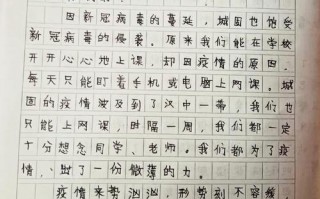 因新冠病毒的蔓延，城固也饱受
新冠病毒的侵袭。原来我们能在学校
开开心心地上课，却因疫情的原因，
每天只能盯着手机或电脑上网课。城
固的疫情波及到了汉中一带，我们也
只能上网课，时隔一周，我们都一定
十分想念同学、老师。我们都为了疫
情，出了一份微薄的力。
疫情来势汹汹，形势刻不容缓，